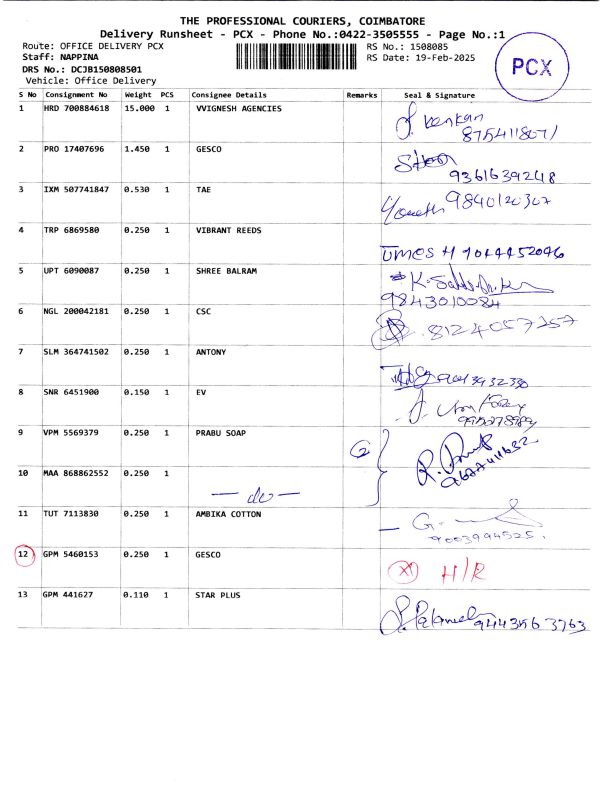 THE PROFESSIONAL COURIERS, COIMBATORE
Delivery Runsheet - PCX - Phone No.:0422-3505555 - Page No.:1
Route: OFFICE DELIVERY PCX
Staff: NAPPINA
DRS No.: DCJB150808501
Vehicle: Office Delivery
RS No.: 1508085
RS Date: 19-Feb-2025
PCX
S No Consignment No Weight PCS Consignee Details Remarks Seal & Signature
1 HRD 700884618 15.000 1 VVIGNESH AGENCIES
2 PRO 17407696 1.450 1 GESCO 9361639248
3 IXM 507741847 0.530 1 TAE 9840120307
4 TRP 6869580 0.250 1 VIBRANT REEDS
5 UPT 6090087 0.250 1 SHREE BALRAM 9843010084
6 NGL 200042181 0.250 1 CSC 8124057257
7 SLM 364741502 0.250 1 ANTONY
8 SNR 6451900 0.150 1 EV
9 VPM 5569379 0.250 1 PRABU SOAP
10 MAA 868862552 0.250 1 — do —
11 TUT 7113830 0.250 1 AMBIKA COTTON 9003994525.
12 GPM 5460153 0.250 1 GESCO H/R
13 GPM 441627 0.110 1 STAR PLUS